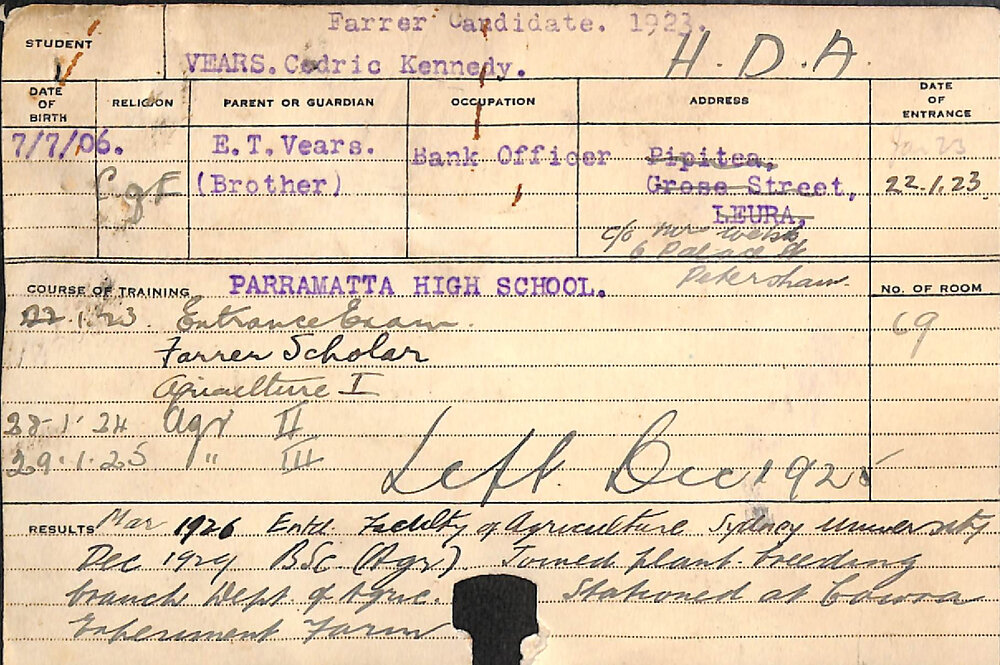 Farrer Candidate. 1923.
STUDENT
VEARS. Cedric Kennedy.
H.D.A.
DATE OF BIRTH
RELIGION
PARENT OR GUARDIAN
OCCUPATION
ADDRESS
DATE OF ENTRANCE
7/7/06.
C of E
E.T. Vears.
(Brother)
Bank Officer
Pipitea,
Grose Street,
LEURA,
c/o Mrs Webb
6 Palace St
Petersham.
Jan 23
22.1.23
COURSE OF TRAINING
PARRAMATTA HIGH SCHOOL.
No. OF ROOM
22.1.23. Entrance Exam.
69
Farrer Scholar
Agriculture I
28.1.24 Agr II
29.1.25 " III
Left. Dec 1925
RESULTS Mar 1926 Entd. Faculty of Agriculture Sydney University
Dec 1929 BSc (Agr). Joined plant-breeding
branch Dept. of Agric. Stationed at Cowra
Experiment Farm